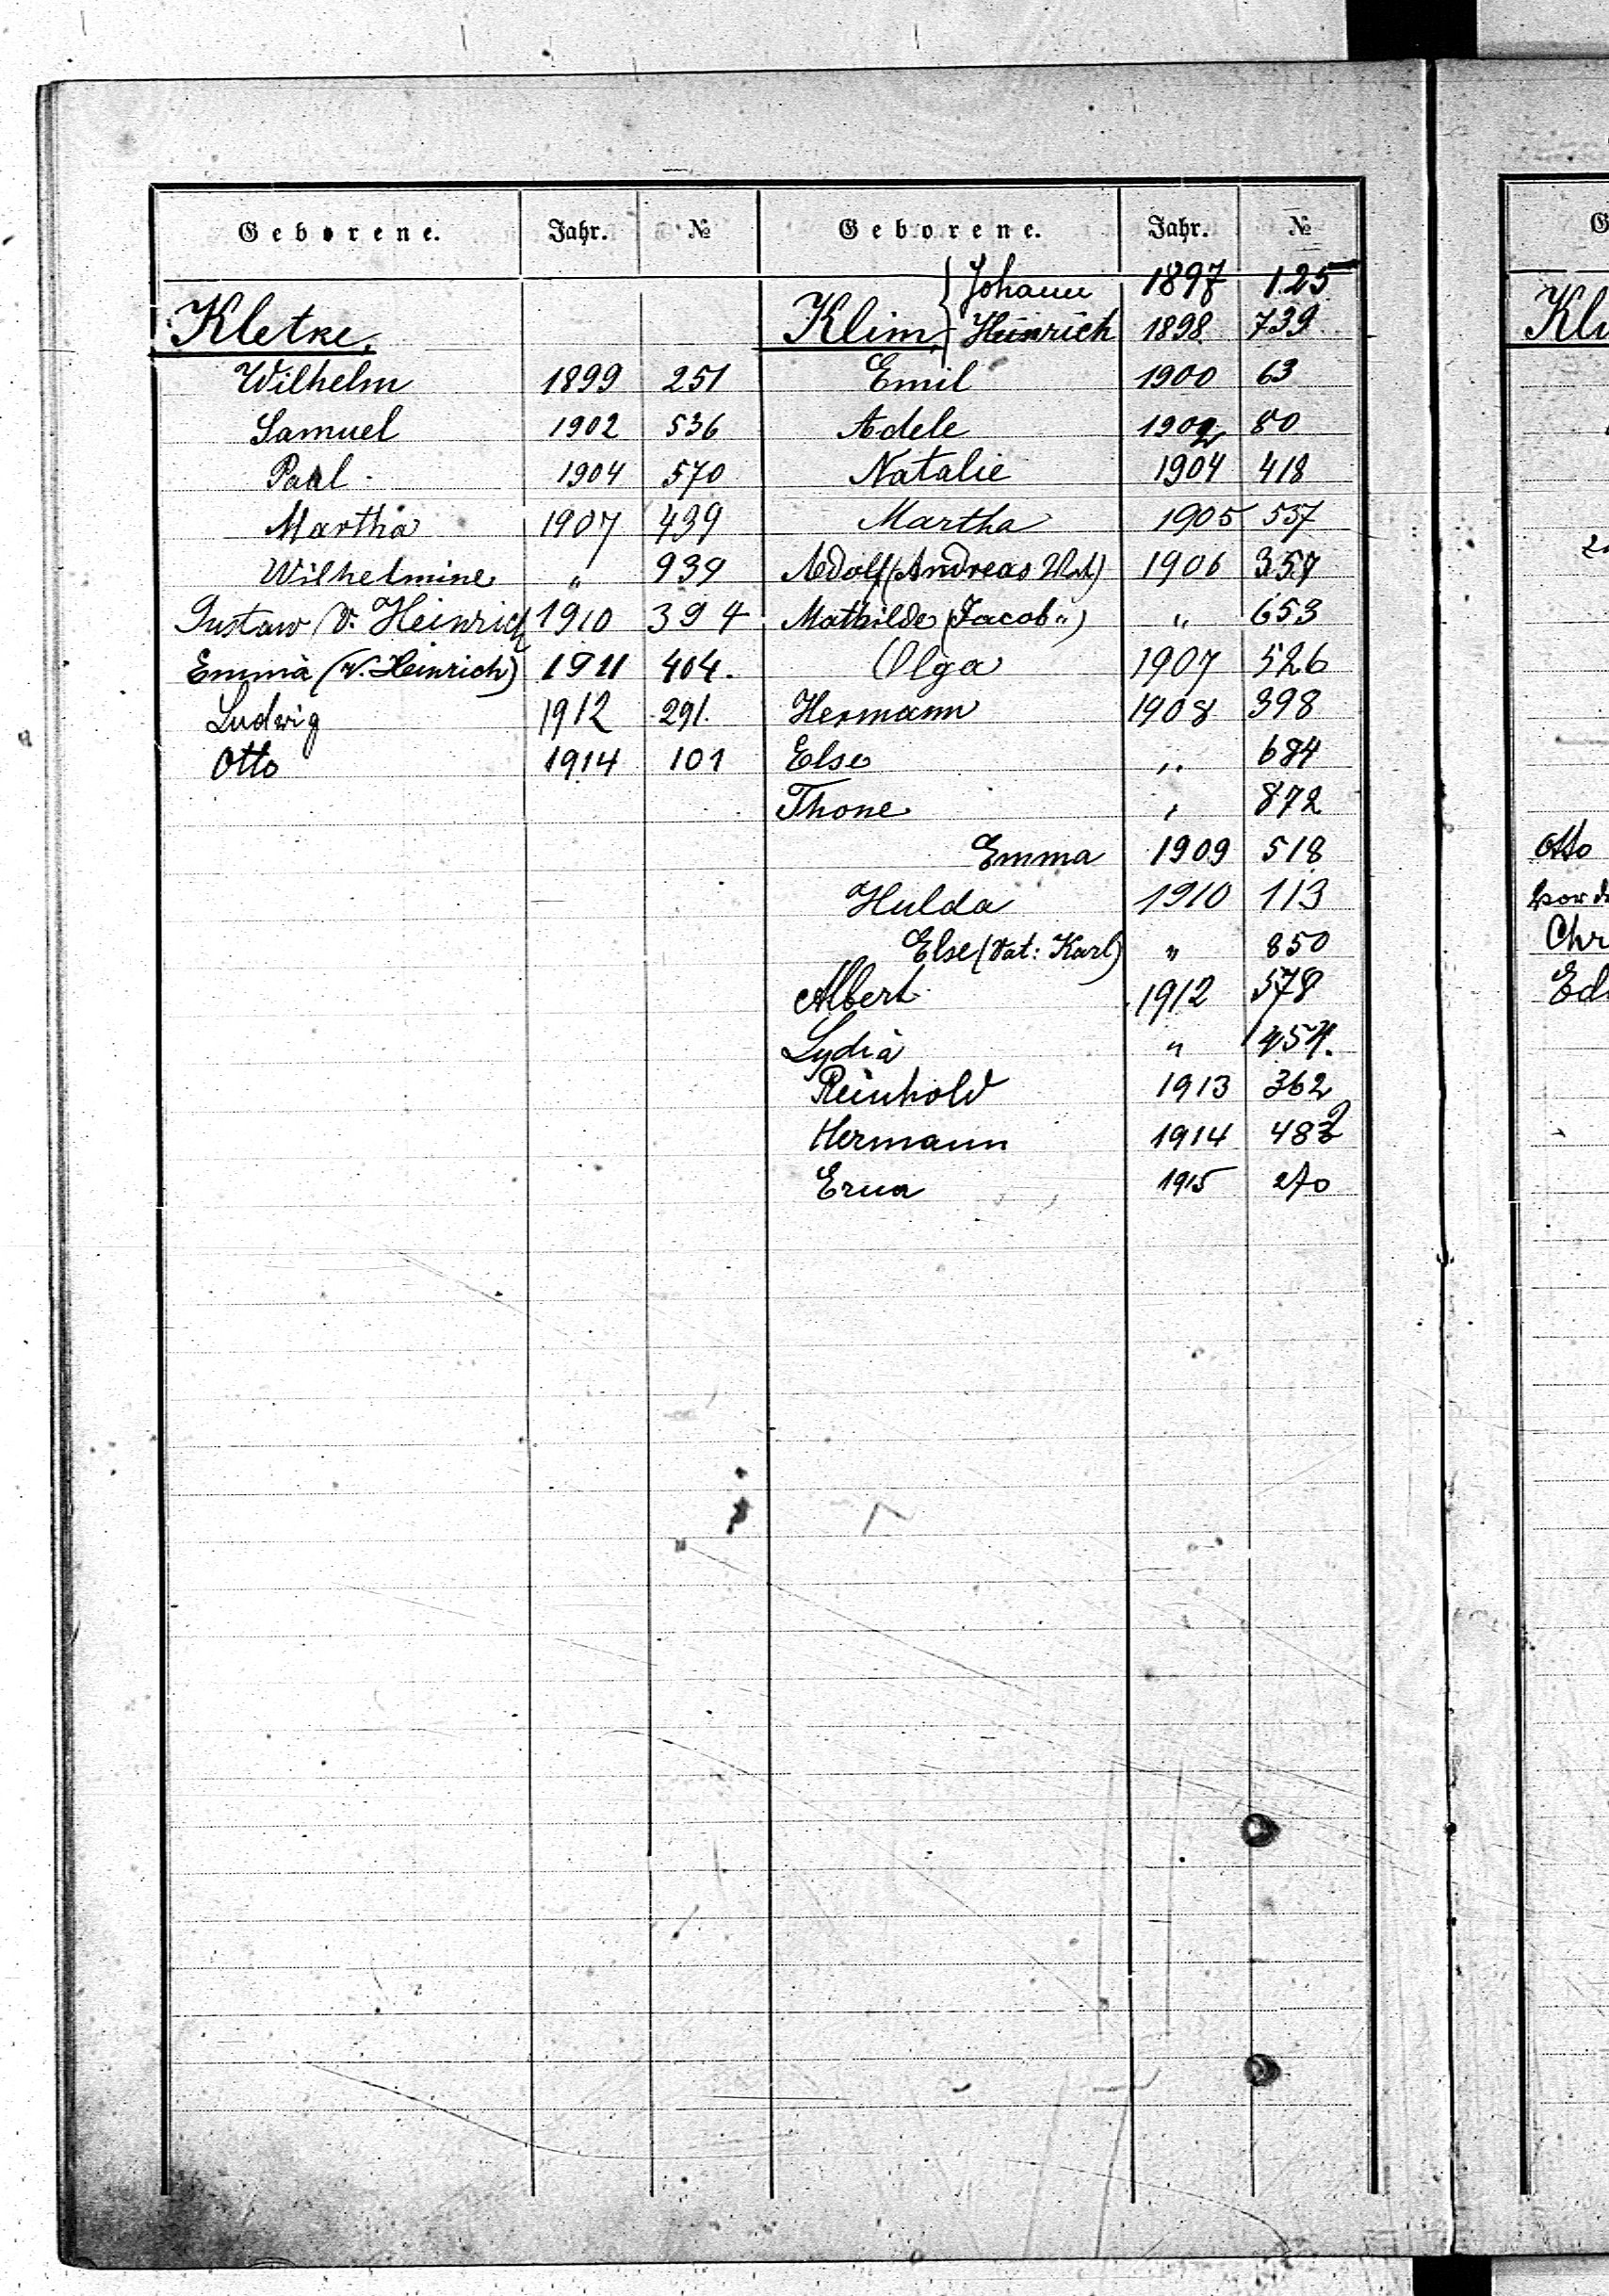 Geborene. Jahr. №
Kletke.
Wilhelm 1899 251
Samuel 1902 536
Paul 1904 570
Martha 1907 439
Wilhelmine " 939
Gustaw (V. Heinrich 1910 394
Emma (V. Heinrich) 1911 404.
Ludwig 1912 291.
Otto 1914 101
Geborene. Jahr. №
Johann 1897 125
Klim, Heinrich 1898 739
Emil 1900 63
Adele 1902 80
Natalie 1904 418
Martha 1905 537
Adolf (Andreas Vat) 1906 357
Mathilde (Jacob ") " 653
Olga 1907 526
Hermann 1908 398
Else " 684
Thone " 872
Emma 1909 518
Hulda 1910 113
Else (Vat: Karl) " 850
Albert 1912 578
Lydia "
Reinhold 1913 362
Hermann 1914
Erna 1915 270
G
Otto
Chr